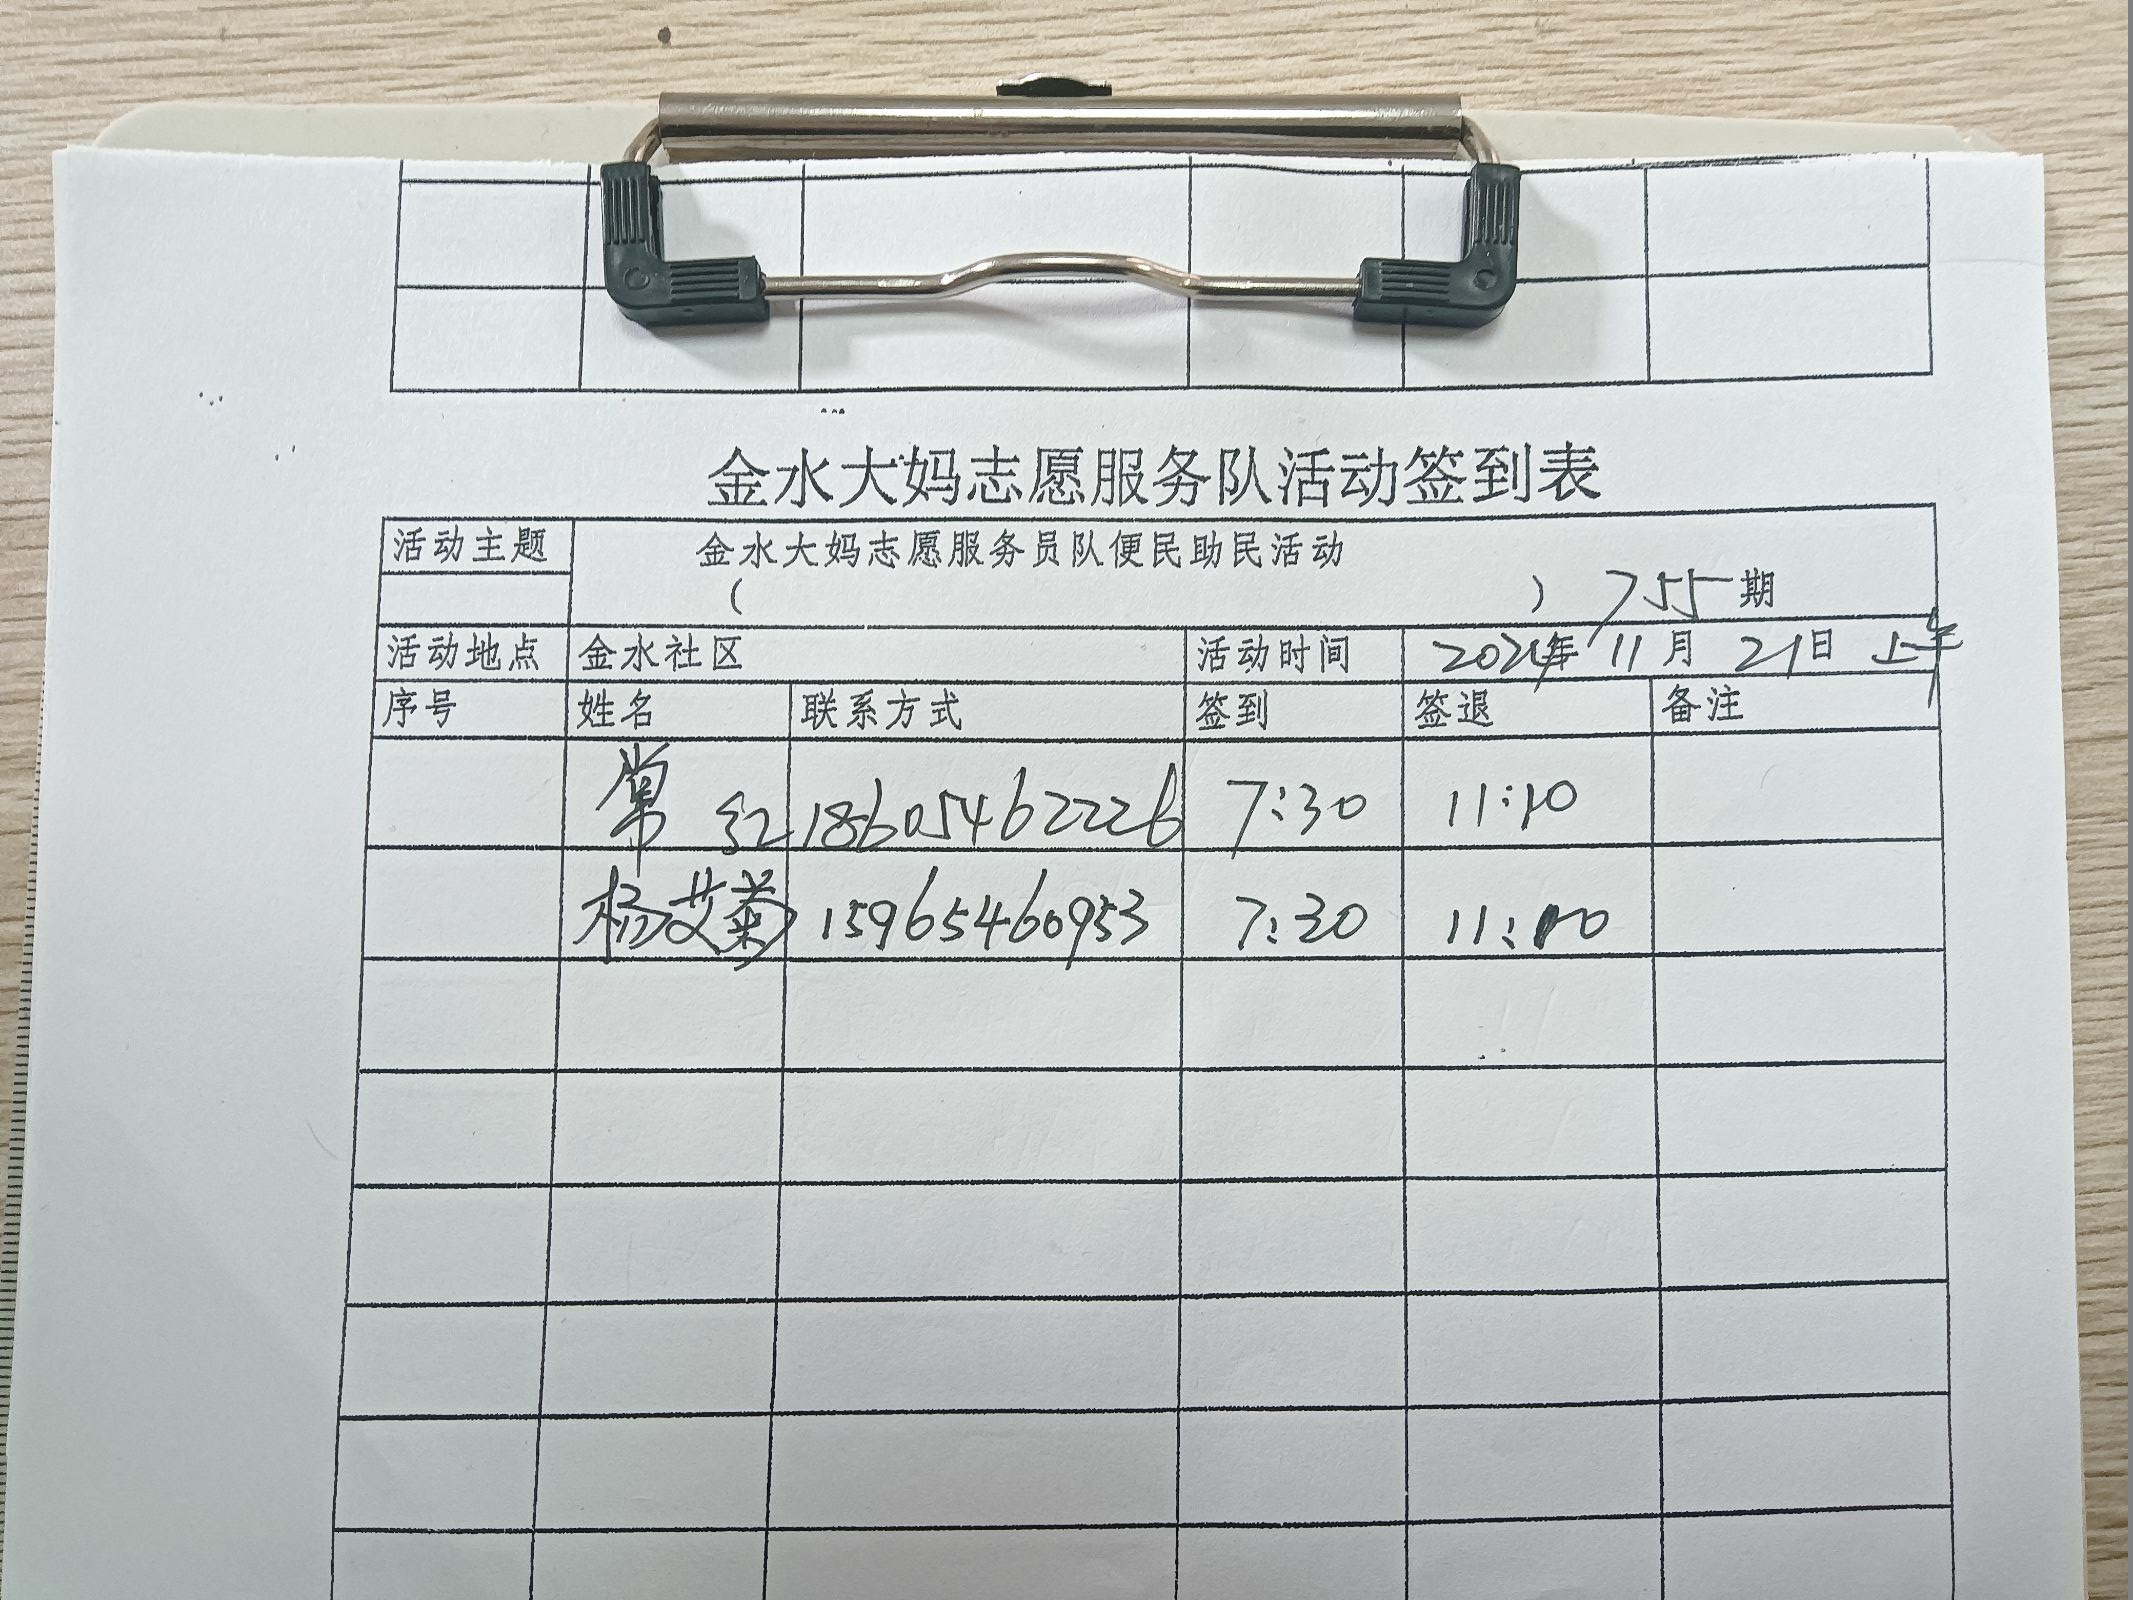 金水大妈志愿服务队活动签到表
活动主题 金水大妈志愿服务员队便民助民活动
( ) 755期
活动地点 金水社区 活动时间 2024年 11月 21日 上午
序号 姓名 联系方式 签到 签退 备注
常红 18605462226 7:30 11:10
杨艾菊 15965460953 7:30 11:10